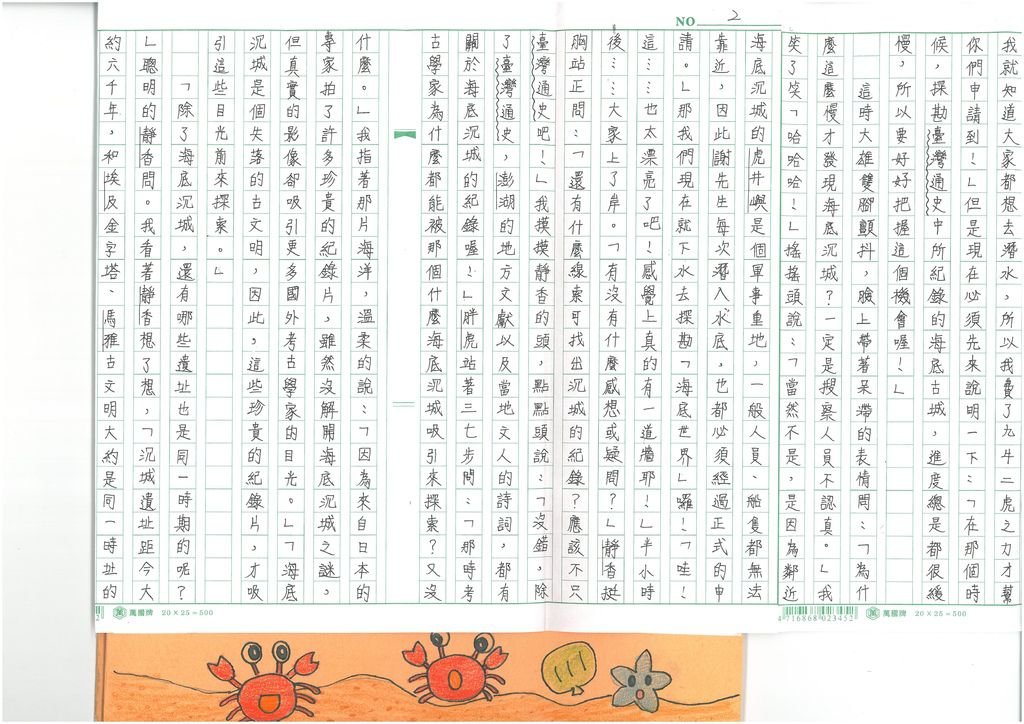 NO 2
我就知道大家都想去潛水，所以我費了九牛二虎之力才幫
你們申請到！」但是現在必須先來說明一下：「在那個時
候，探勘臺灣通史中所紀錄的海底古城，進度總是都很緩
慢，所以要好好把握這個機會喔！」
這時大雄雙腳顫抖，臉上帶著呆滯的表情問：「為什
麼這麼慢才發現海底沉城？一定是搜察人員不認真。」我
笑了笑「哈哈哈！」搖搖頭說：「當然不是，是因為鄰近
海底沉城的虎井嶼是個軍事重地，一般人員、船隻都無法
靠近，因此謝先生每次潛入水底，也都必須經過正式的申
請。」那我們現在就下水去探勘「海底世界」囉！「哇！
這……也太漂亮了吧！感覺上真的有一道牆耶！」半小時
後……大家上了岸。「有沒有什麼感想或疑問？」靜香挺
胸站正問：「還有什麼線索可找出沉城的紀錄？應該不只
臺灣通史吧！」我摸摸靜香的頭，點點頭說：「沒錯，除
了臺灣通史，澎湖的地方文獻以及當地文人的詩詞，都有
關於海底沉城的紀錄喔！」胖虎站著三七步問：「那時考
古學家為什麼都能被那個什麼海底沉城吸引來探索？又沒
什麼。」我指著那片海洋，溫柔的說：「因為來自日本的
專家拍了許多珍貴的紀錄片，雖然沒解開海底沉城之謎，
但真實的影像卻吸引更多國外考古學家的目光。」「海底
沉城是個失落的古文明，因此，這些珍貴的紀錄片，才吸
引這些目光前來探索。」
「除了海底沉城，還有哪些遺址也是同一時期的呢？
」聰明的靜香問。我看著靜香想了想，「沉城遺址距今大
約六千年，和埃及金字塔、馬雅古文明大約是同一時址的
萬國牌 20×25=500
4 716868 023452
萬國牌 20×25=500
2